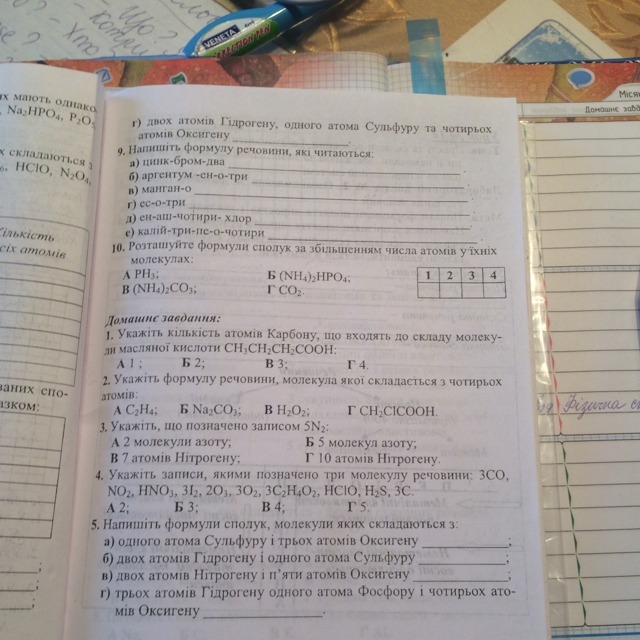 VENETA
Місяц
Домашнє завд
их мають однако
, Na₂HPO₄, P₂O₅
х складаються з
HClO, N₂O₄,
Кількість
сіх атомів
ваних спо-
азком:
г) двох атомів Гідрогену, одного атома Сульфуру та чотирьох
атомів Оксигену
9. Напишіть формулу речовини, які читаються:
а) цинк-бром-два
б) аргентум -ен-о-три
в) манган-о
г) ес-о-три
д) ен-аш-чотири- хлор
е) калій-три-пе-о-чотири
10. Розташуйте формули сполук за збільшенням числа атомів у їхніх
молекулах:
А PH₃; Б (NH₄)₂HPO₄;
В (NH₄)₂CO₃; Г CO₂.
1 2 3 4
Домашнє завдання:
1. Укажіть кількість атомів Карбону, що входять до складу молеку-
ли масляної кислоти CH₃CH₂CH₂COOH:
А 1 ; Б 2; В 3; Г 4.
2. Укажіть формулу речовини, молекула якої складається з чотирьох
атомів:
А C₂H₄; Б Na₂CO₃; В H₂O₂; Г CH₂ClCOOH.
3. Укажіть, що позначено записом 5N₂:
А 2 молекули азоту; Б 5 молекул азоту;
В 7 атомів Нітрогену; Г 10 атомів Нітрогену.
4. Укажіть записи, якими позначено три молекулу речовини: 3CO,
NO₂, HNO₃, 3I₂, 2O₃, 3O₂, 3C₂H₄O₂, HClO, H₂S, 3C.
А 2; Б 3; В 4; Г 5.
5. Напишіть формули сполук, молекули яких складаються з:
а) одного атома Сульфуру і трьох атомів Оксигену ;
б) двох атомів Гідрогену і одного атома Сульфуру ;
в) двох атомів Нітрогену і п’яти атомів Оксигену ;
г) трьох атомів Гідрогену одного атома Фосфору і чотирьох ато-
мів Оксигену .
Фізична